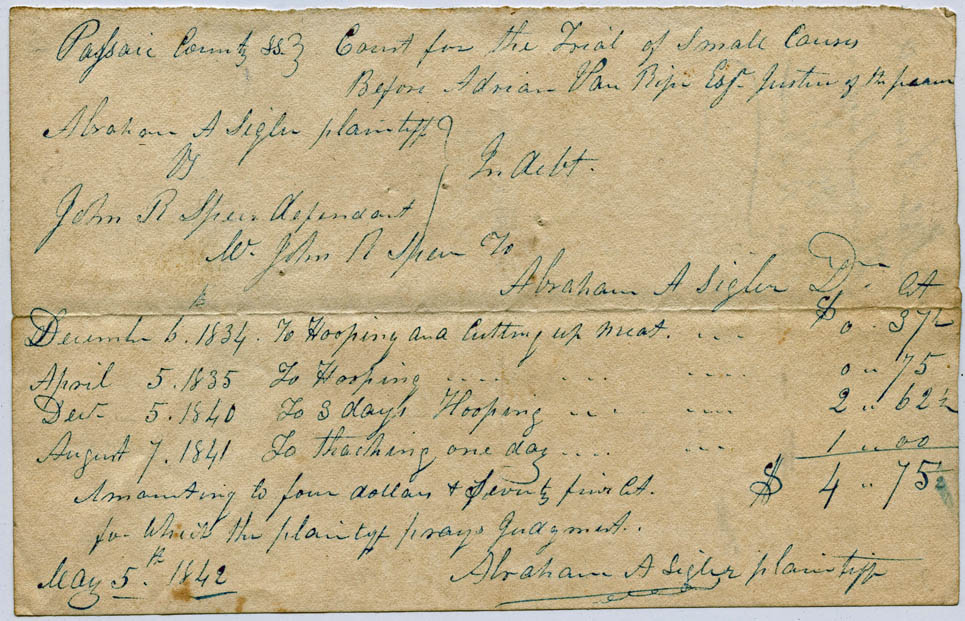 Passaic County ss} Court for the Trial of Small Causes
Before Adrian Van Riper Esqr Justice of the peace
Abraham A Sigler plaintiff
Vs
In debt.
John R Speer defendant
Mr John R Speer To
Abraham A Sigler Dr Ct
December 6th 1834. To Hooping and Cutting up meat. $0 .. 37½
April 5. 1835 To Hooping 0 .. 75
Decr 5. 1840 To 3 days Hooping 2 .. 62½
August 7. 1841 To thaching one day 1 .. 00
Amounting to four dollars & Seventy five Ct. $ 4 .. 75
for which the plaintiff prays Judgment.
May 5th 1842 Abraham A Sigler plaintiff